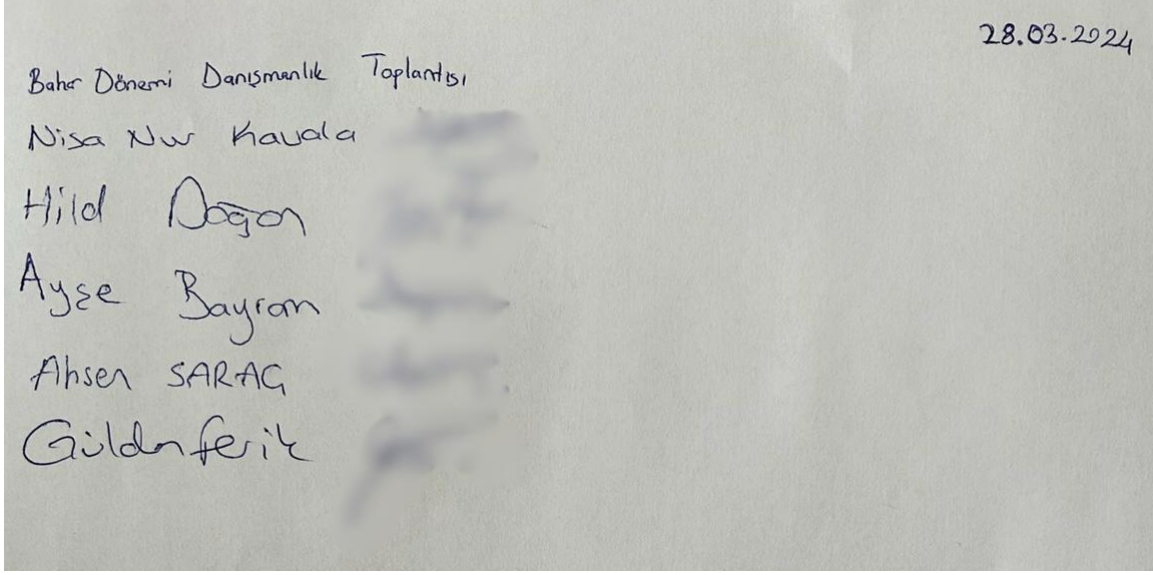 28.03.2024
Bahar Dönemi Danışmanlık Toplantısı
Nisa Nur Kavala
Hilal Doğan
Ayşe Bayram
Ahsen SARAÇ
Gülden ferik